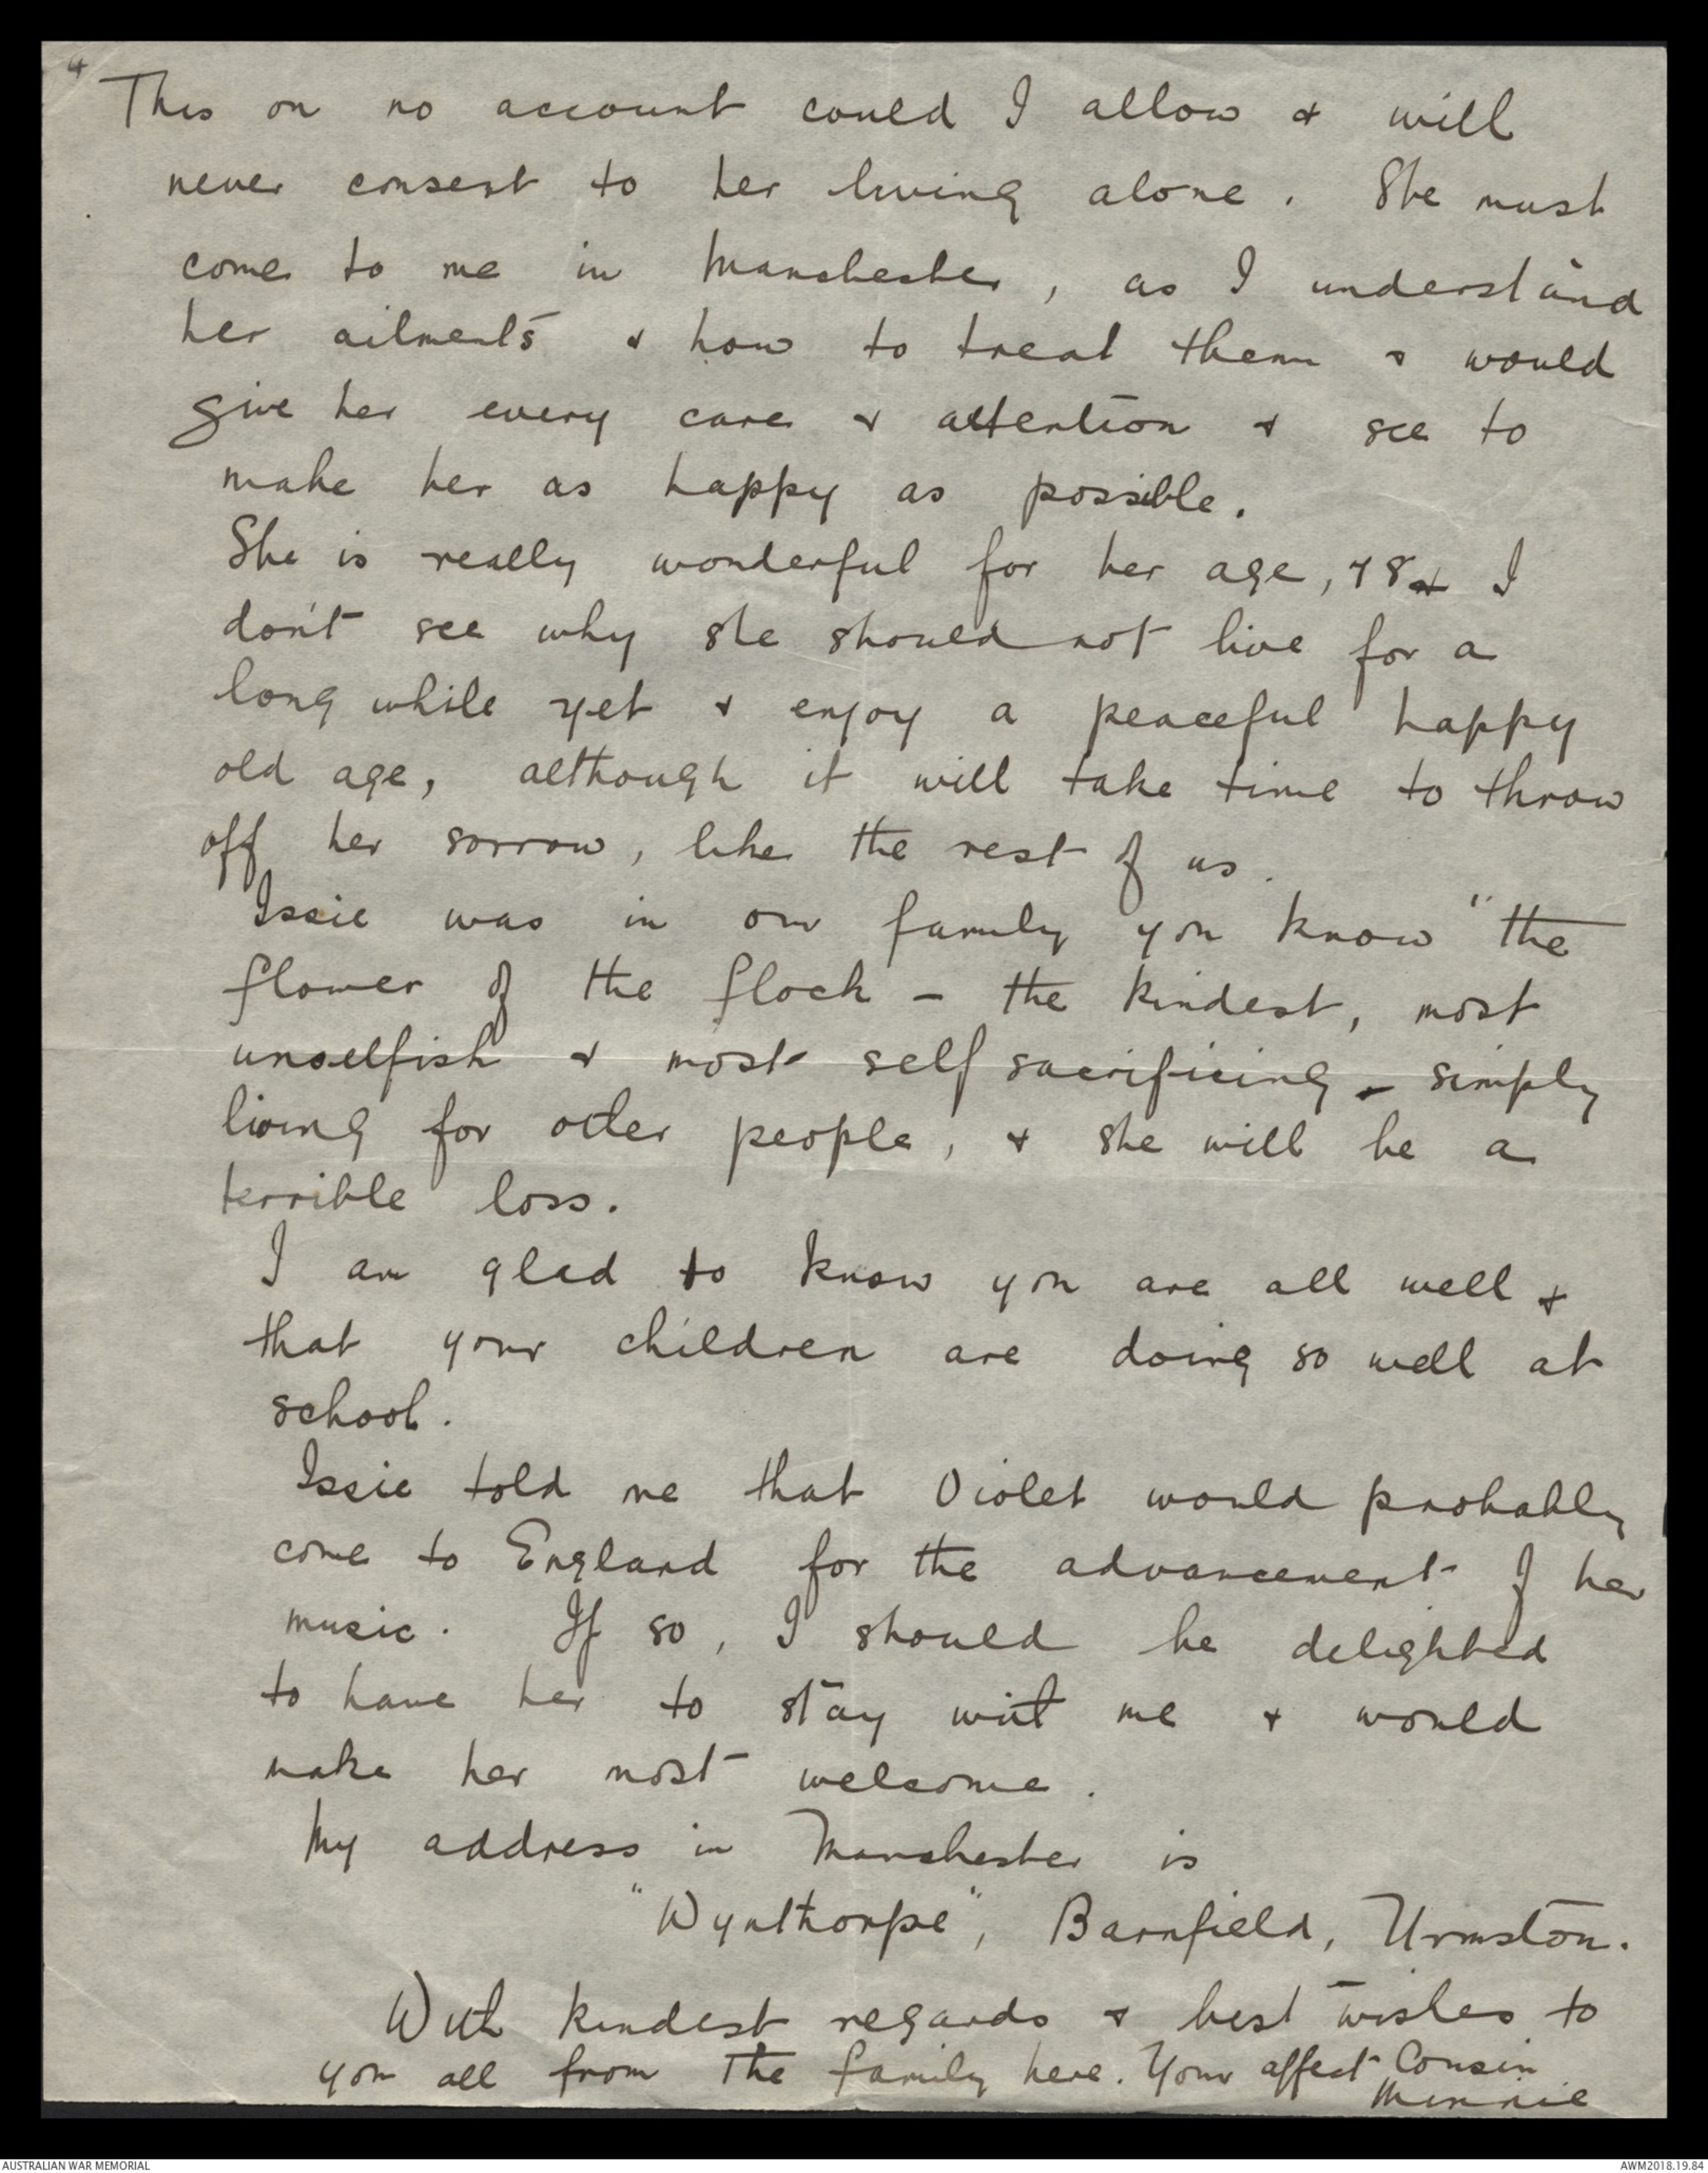 4
This on no account could I allow & will
never consent to her living alone. She must
come to me in Manchester, as I understand
her ailments & how to treat them & would
give her every care & attention & see to
make her as happy as possible.
She is really wonderful for her age, 78 & I
don't see why she should not live for a
long while yet & enjoy a peaceful happy
old age, although it will take time to throw
off her sorrow, like the rest of us.
Issie was in our family you know "the
flower of the flock - the kindest, most
unselfish & most self sacrificing - simply
living for other people, & she will be a
terrible loss.
I am glad to know you are all well &
that your children are doing so well at
school.
Issie told me that Violet would probably
come to England for the advancement of her
music. If so, I should be delighted
to have her to stay with me & would
make her most welcome.
My address in Manchester is
"Wynthorpe", Barnfield, Urmston.
With kindest regards & best wishes to
you all from the family here. Your affect Cousin
Minnie
AUSTRALIAN WAR MEMORIAL
AWM2018.19.84